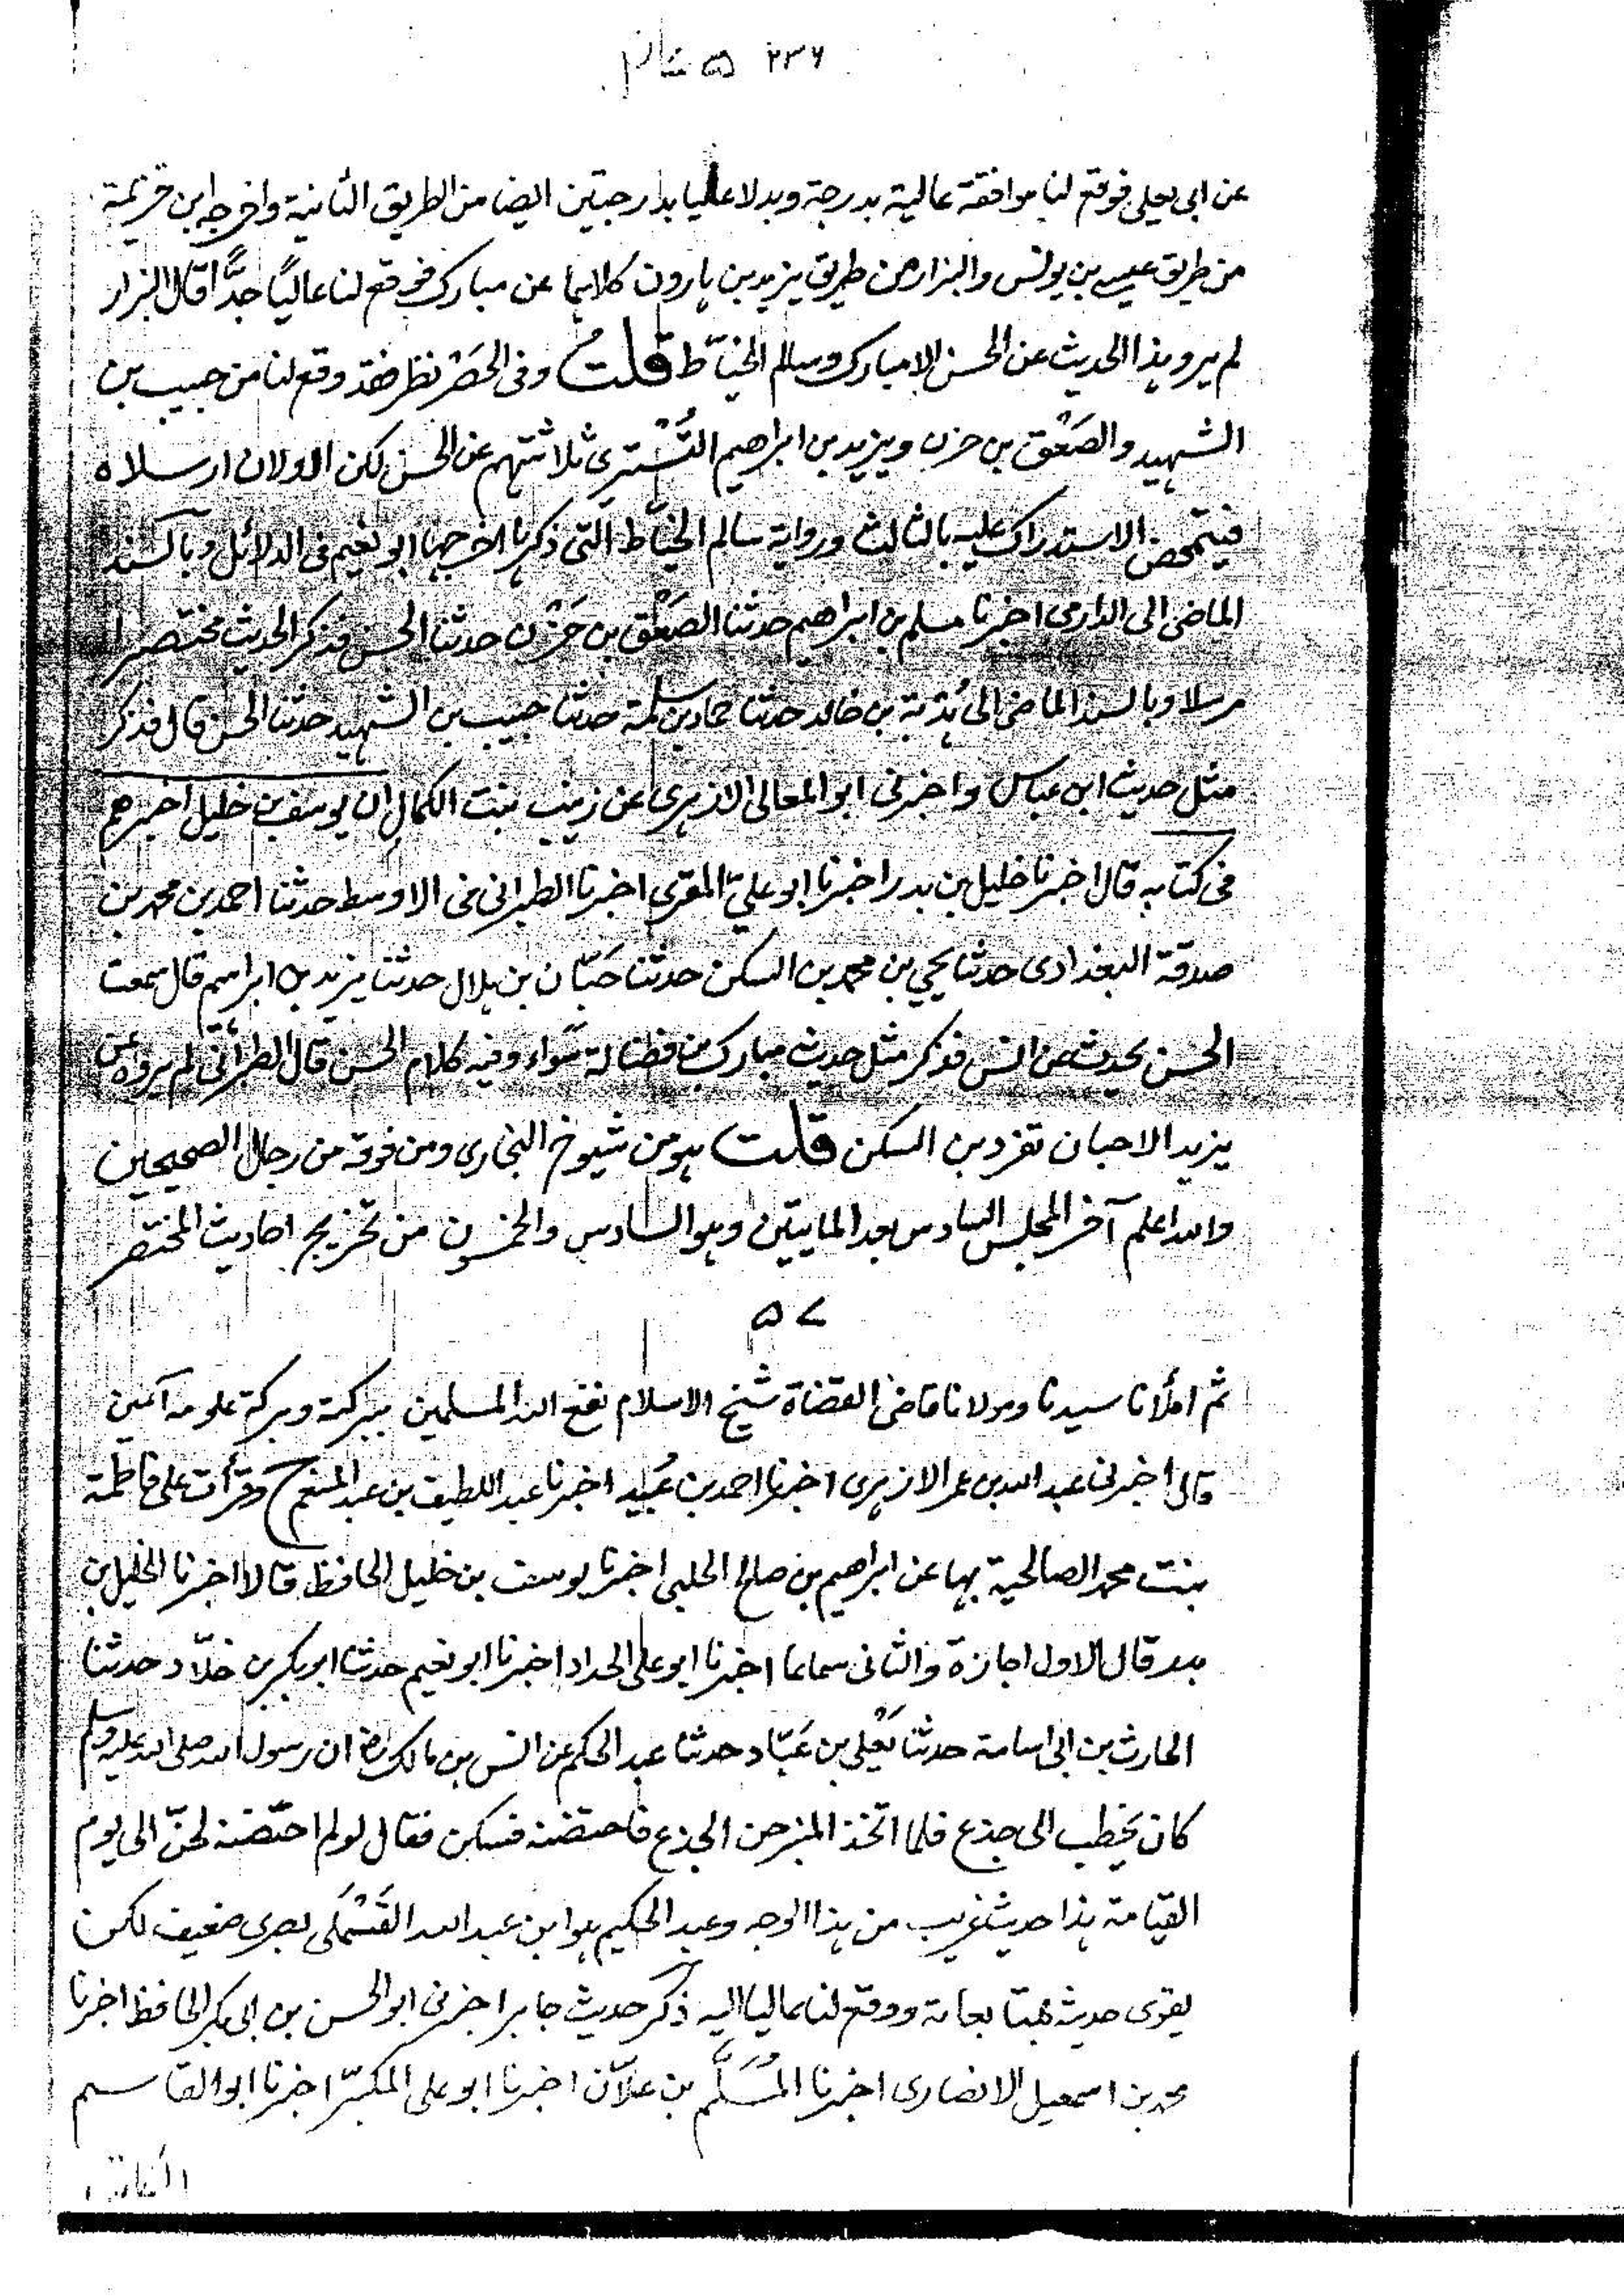 ٢٣٦
عن ابى يعلى فوقع لنا موافقة عالية بدرجة وبدلا عليا بدرجتين ايضا من الطريق الثانية واخرجه ابن خزيمة
من طريق عيسى بن يونس والبزار من طريق يزيد بن هارون كلاهما عن مبارك فوقع لنا عاليًا جدًّا قال البزار
لم يرو هذا الحديث عن الحسن الا مبارك وسالم الخيّاط قلت وفى الحَصْر نظر فقد وقع لنا من حبيب بن
الشهيد والصَعْق بن حزن ويزيد بن ابراهيم التُسْتَرى ثلاثتهم عن الحسن لكن الاولان ارسلاه
فيتمحض الاستدراك عليه بالثالث ورواية سالم الخيّاط التى ذكرها اخرجها ابو نعيم فى الدلائل وبالسند
الماضى الى الدارمى اخبرنا مسلم بن ابراهيم حدثنا الصَعْق بن حَزْن حدثنا الحسن فذكر الحديث مختصرا
مرسلا وبالسند الماضى الى هُدْبة بن خالد حدثنا حماد بن سلمة حدثنا حبيب بن الشهيد حدثنا الحسن قال فذكر
مثل حديث ابن عباس واخبرنى ابو المعالى الازهرى عن زينب بنت الكمال ان يوسف بن خليل اخبرهم
فى كتابه قال اخبرنا خليل بن بدر اخبرنا ابو علىّ المقرى اخبرنا الطبرانى فى الاوسط حدثنا احمد بن محمد بن
صدقة البغدادى حدثنا يحيى بن محمد بن السكن حدثنا حَبّان بن هلال حدثنا يزيد بن ابراهيم قال سمعت
الحسن يحدث عن انس فذكر مثل حديث مبارك بن فضالة سواء وفيه كلام الحسن قال الطبرانى لم يروه عن
يزيد الا حبان تفرد بن السكن قلت هو من شيوخ البخارى ومن فوقه من رجال الصحيحين
والله اعلم آخر المجلس السادس بعد المايتين وهو السادس والخمسون من تخريج احاديث المختصر
٥٧
ثم املأنا سيدنا ومولانا قاضى القضاة شيخ الاسلام نفع الله المسلمين ببركته وبركة علومه آمين
قال اخبرنى عبد الله بن عمر الازهرى اخبرنا احمد بن عُبيد اخبرنا عبد اللطيف بن عبد المنعم ح وقرأت على فاطمة
بنت محمد الصالحية بها عن ابراهيم بن صالح الحلبى اخبرنا يوسف بن خليل الحافظ قالا اخبرنا الخليل بن
بدر قال الاول اجازة والثانى سماعا اخبرنا ابو على الحداد اخبرنا ابو نعيم حدثنا ابو بكر بن خلّاد حدثنا
الحارث بن ابى اسامة حدثنا يَعْلى بن عَبّاد حدثنا عبد الحكم عن انس بن مالك رضه ان رسول الله صلى الله عليه وسلم
كان يخطب الى جذع فلما اتخذ المنبر حن الجذع فاحتضنه فسكن فقال لو لم احتضنه لحنّ الى يوم
القيامة هذا حديث غريب من هذا الوجه وعبد الحكيم هو ابن عبد الله القَسْمَلى بصرى ضعيف لكن
يقوى حديثه بمتابعاته ووقع لنا عاليا اليه ذكر حديث جابر اخبرنى ابو الحسن بن ابى بكر الحافظ اخبرنا
محمد بن اسمعيل الانصارى اخبرنا المُسَلَّم بن علاّن اخبرنا ابو على المكبّر اخبرنا ابو القاسم